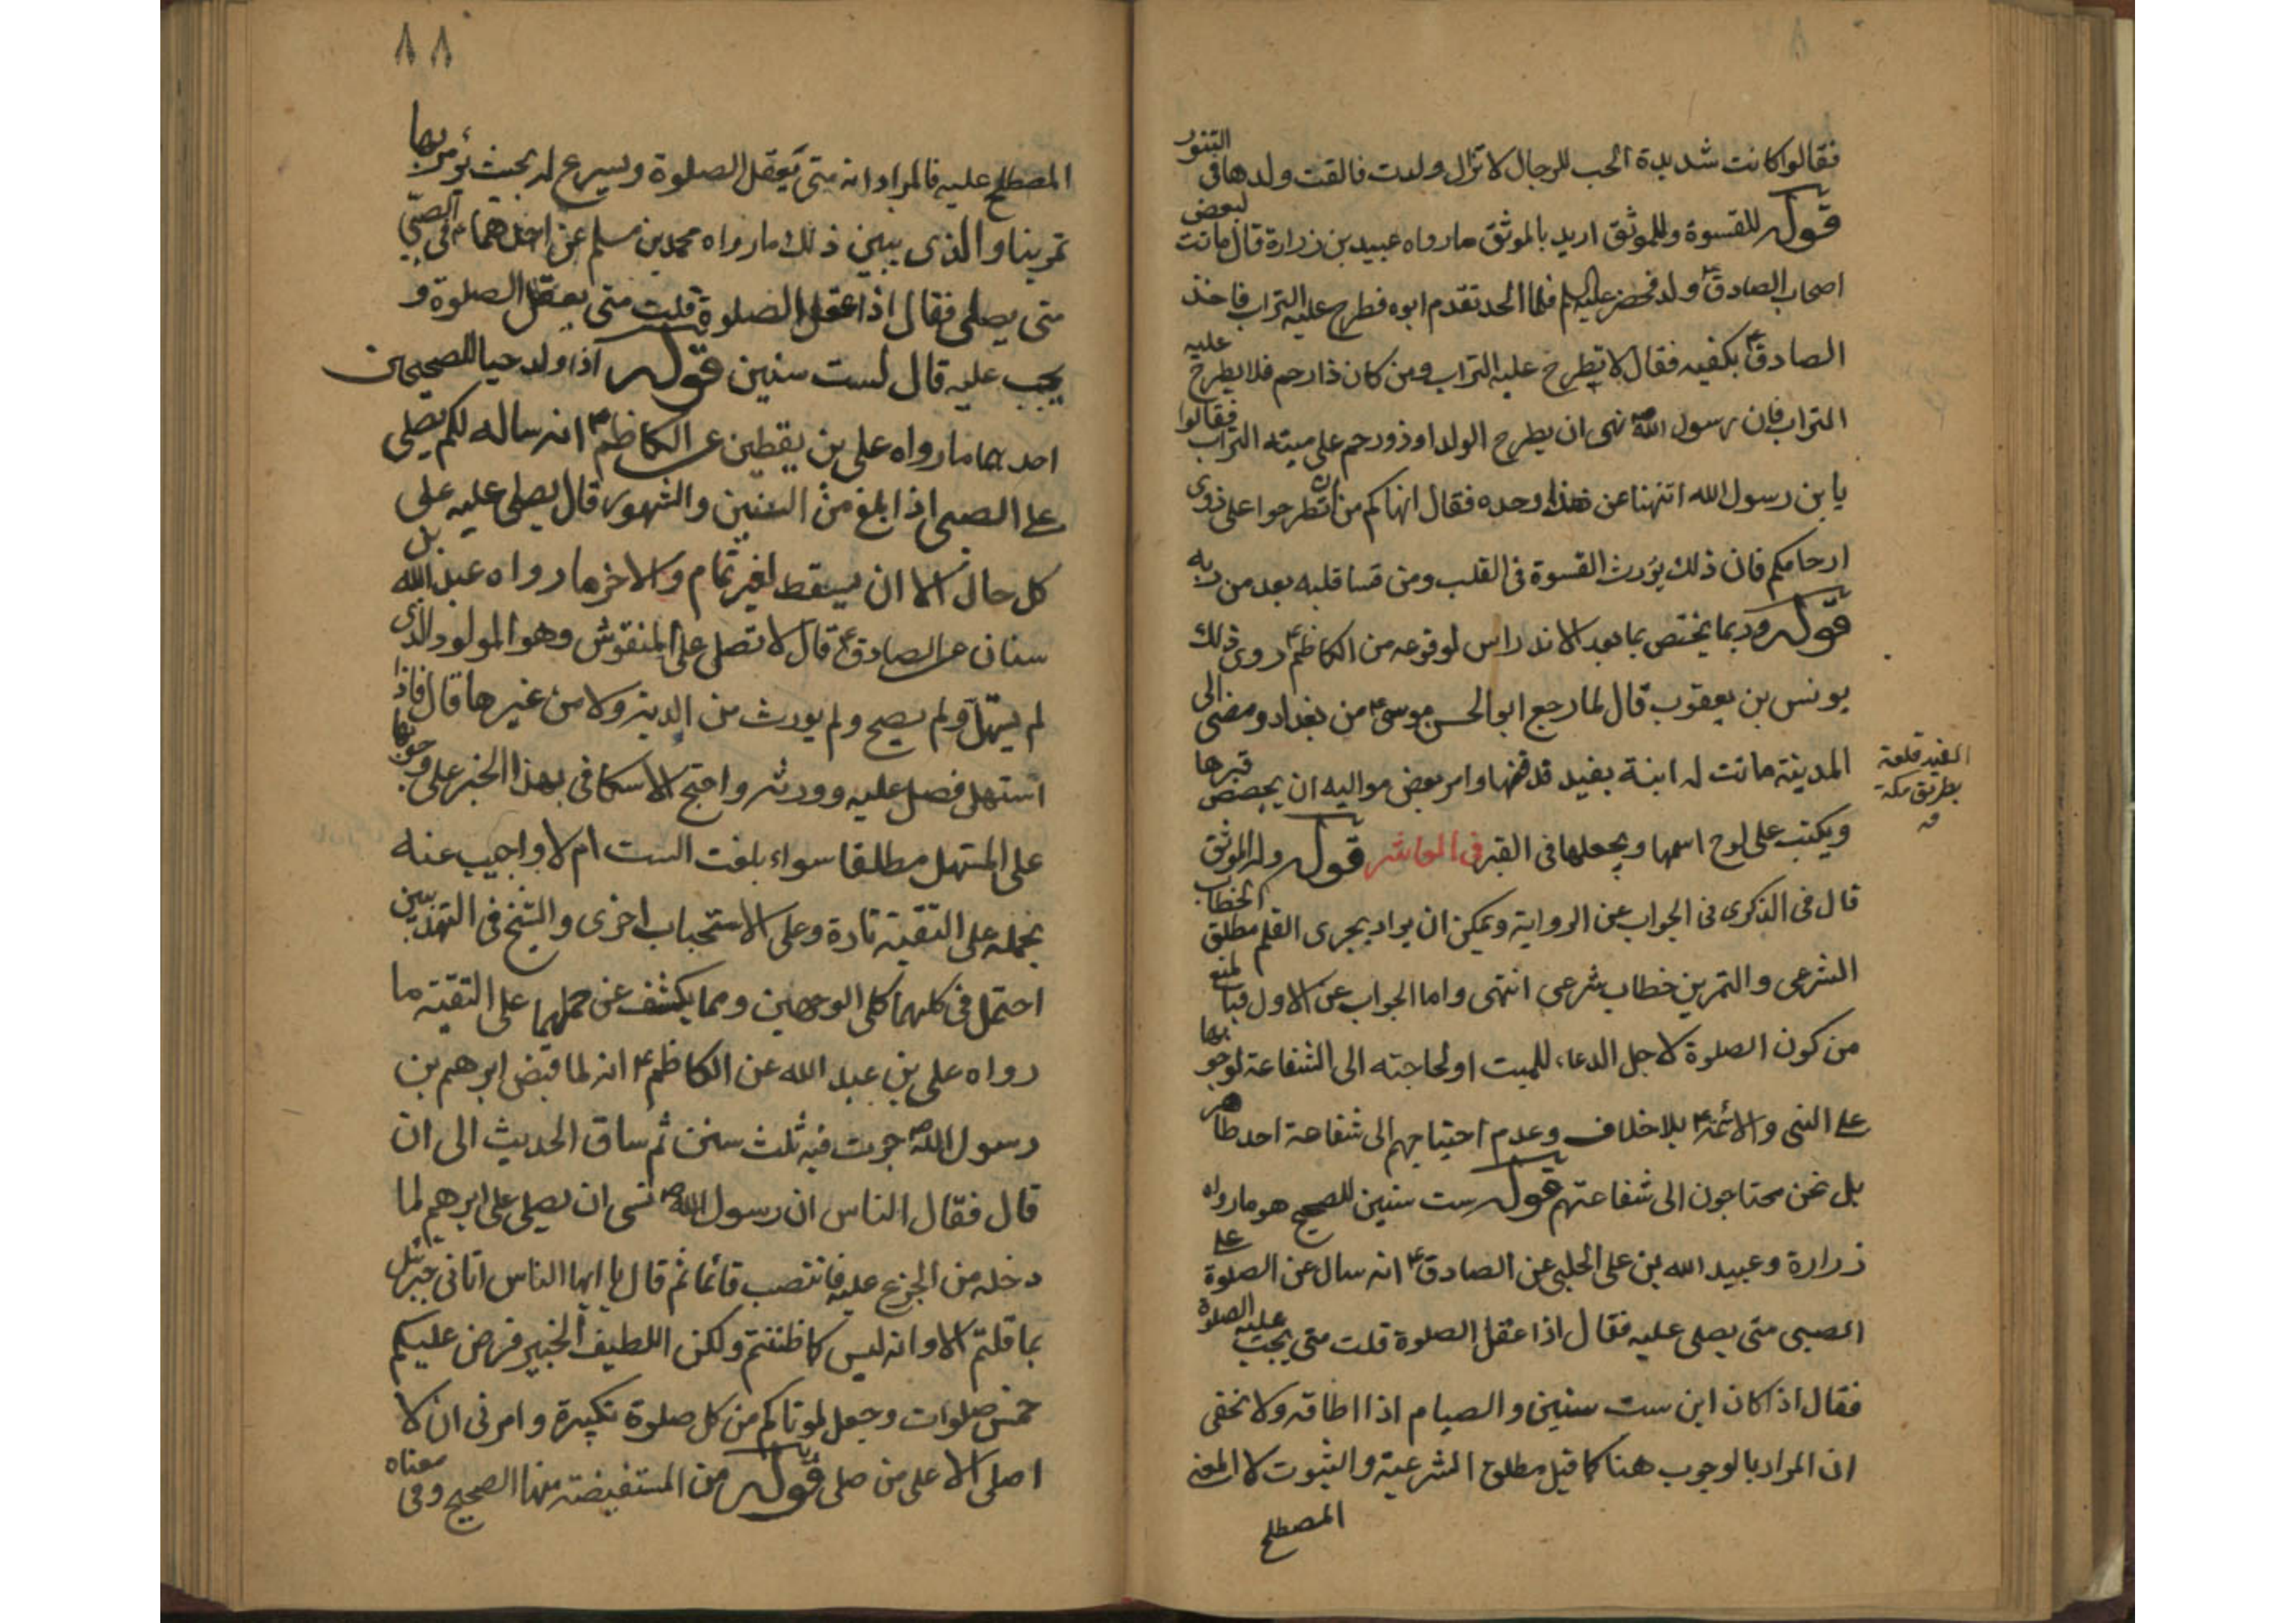 فقالوا كانت شديدة الحب للرجال لا تزال ولدت فالقت ولدها فى التنور
قوله للقسوة وللموثق اريد بالموثق ما رواه عبيد بن زرارة قال ماتت لبعض
اصحاب الصادق ع ولد فحضر عليه السلام فلما الحد تقدم ابوه فطرح عليه التراب فاخذ
الصادق ع بكفيه فقال لا تطرح عليه التراب ومن كان ذا رحم فلا يطرح عليه
التراب فان رسول الله ص نهى ان يطرح الولد او ذو رحم على ميته التراب فقالوا
يا بن رسول الله اتنهنا عن هذا وحده فقال انهاكم من ان تطرحوا على ذوى
ارحامكم فان ذلك يورث القسوة فى القلب ومن قسا قلبه بعد من ربه
قوله وربما يختص بما بعد الاندراس لوقوعه من الكاظم ع روى ذلك
يونس بن يعقوب قال لما رجع ابو الحسن موسى ع من بغداد ومضى الى
المدينة ماتت له ابنة بفيد فدفنها وامر بعض مواليه ان يجصص قبرها
الفيد قلعة
بطريق مكة
منه
ويكتب على لوح اسمها ويجعلها فى القبر فى العاشر قوله وللموثق
قال فى الذكرى فى الجواب عن الرواية ويمكن ان يراد بجرى القلم مطلق الخطاب
الشرعى والتمرين خطاب شرعى انتهى واما الجواب عن الاول فبالمنع
من كون الصلوة لاجل الدعاء للميت او لحاجته الى الشفاعة لوجوبها
على النبى والائمة ع بلا خلاف وعدم احتياجهم الى شفاعة احد ظاهر
بل نحن محتاجون الى شفاعتهم قوله ست سنين للصحيح هو ما رواه
زرارة وعبيد الله بن على الحلبى عن الصادق ع انه سال عن الصلوة على
الصبى متى يصلى عليه فقال اذا عقل الصلوة قلت متى يجب عليه الصلوة
فقال اذا كان ابن ست سنين والصيام اذا اطاقه ولا يخفى
ان المراد بالوجوب هنا كما قيل مطلق الشرعية والثبوت لا المعنى
المصطلح
٨٨
المصطلح عليه فالمراد انه متى يعقل الصلوة ويسرع له بحيث يؤمر بها
تمرينا والذى يبين ذلك ما رواه محمد بن مسلم عن احدهما ع فى الصبى
متى يصلى فقال اذا عقل الصلوة قلت متى يعقل الصلوة و
يجب عليه قال لست سنين قوله اذا ولد حيا للصحيحين
احدهما ما رواه على بن يقطين عن الكاظم ع انه ساله لكم يصلى
على الصبى اذا بلغ من السنين والشهور قال يصلى عليه على
كل حال الا ان يسقط لغير تمام والاخر ما رواه عبد الله بن
سنان عن الصادق ع قال لا تصلى على المنفوس وهو المولود الذى
لم يستهل ولم يصح ولم يورث من الدية ولا من غيرها قال فاذا
استهل فصل عليه وورثه واحتج الاسكافى بهذا الخبر على وجوبها
على المستهل مطلقا سواء بلغت الست ام لا واجيب عنه
بحمله على التقية تارة وعلى الاستحباب اخرى والشيخ فى التهذيبين
احتمل فى كليهما كلى الوجهين ومما يكشف عن حملهما على التقية ما
رواه على بن عبد الله عن الكاظم ع انه لما قبض ابرهيم بن
رسول الله ص جرت فيه ثلث سنن ثم ساق الحديث الى ان
قال فقال الناس ان رسول الله ص نسى ان يصلى على ابرهيم لما
دخله من الجزع عليه فانتصب قائما ثم قال يا ايها الناس اتانى جبرئيل
بما قلتم الا وانه ليس كما ظننتم ولكن اللطيف الخبير فرض عليكم
خمس صلوات وجعل لموتاكم من كل صلوة تكبيرة وامرنى ان لا
اصلى الا على من صلى قوله من المستفيضة منها الصحيح وفى معناه